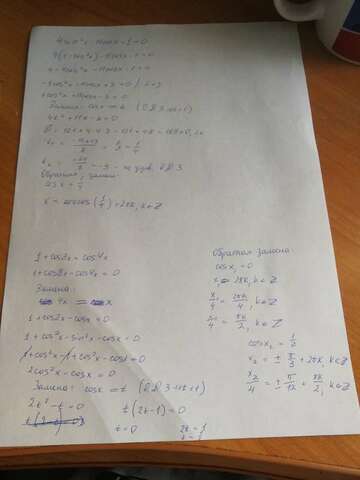 4sin²x - 11cosx - 1 = 0
4(1 - cos²x) - 11cosx - 1 = 0
4 - 4cos²x - 11cosx - 1 = 0
-4cos²x - 11cosx + 3 = 0
4cos²x + 11cosx - 3 = 0
Замена: cosx = t
4t² + 11t - 3 = 0
Обратная замена:
cosx = 1/4
x = ± arccos(1/4) + 2πk, k∈Z
1 + cos2x = cos4x
1 + cos2x - cos4x = 0
Замена:
4x = x
1 + cos2x - cosx = 0
1 + cos²x - sin²x - cosx = 0
1 + cos²x - 1 + cos²x - cosx = 0
2cos²x - cosx = 0
Замена: cosx = t
2t² - t = 0
t(2t - 1) = 0
t = 0
2t = 1
Обратная замена:
cosx₁ = 0
x = 2πk, k∈Z
x/4 = 2πk/4, k∈Z
x/4 = πk/2, k∈Z
cosx₂ = 1/2
x₂ = ± π/3 + 2πk, k∈Z
x₂/4 = ± π/12 + πk/2, k∈Z